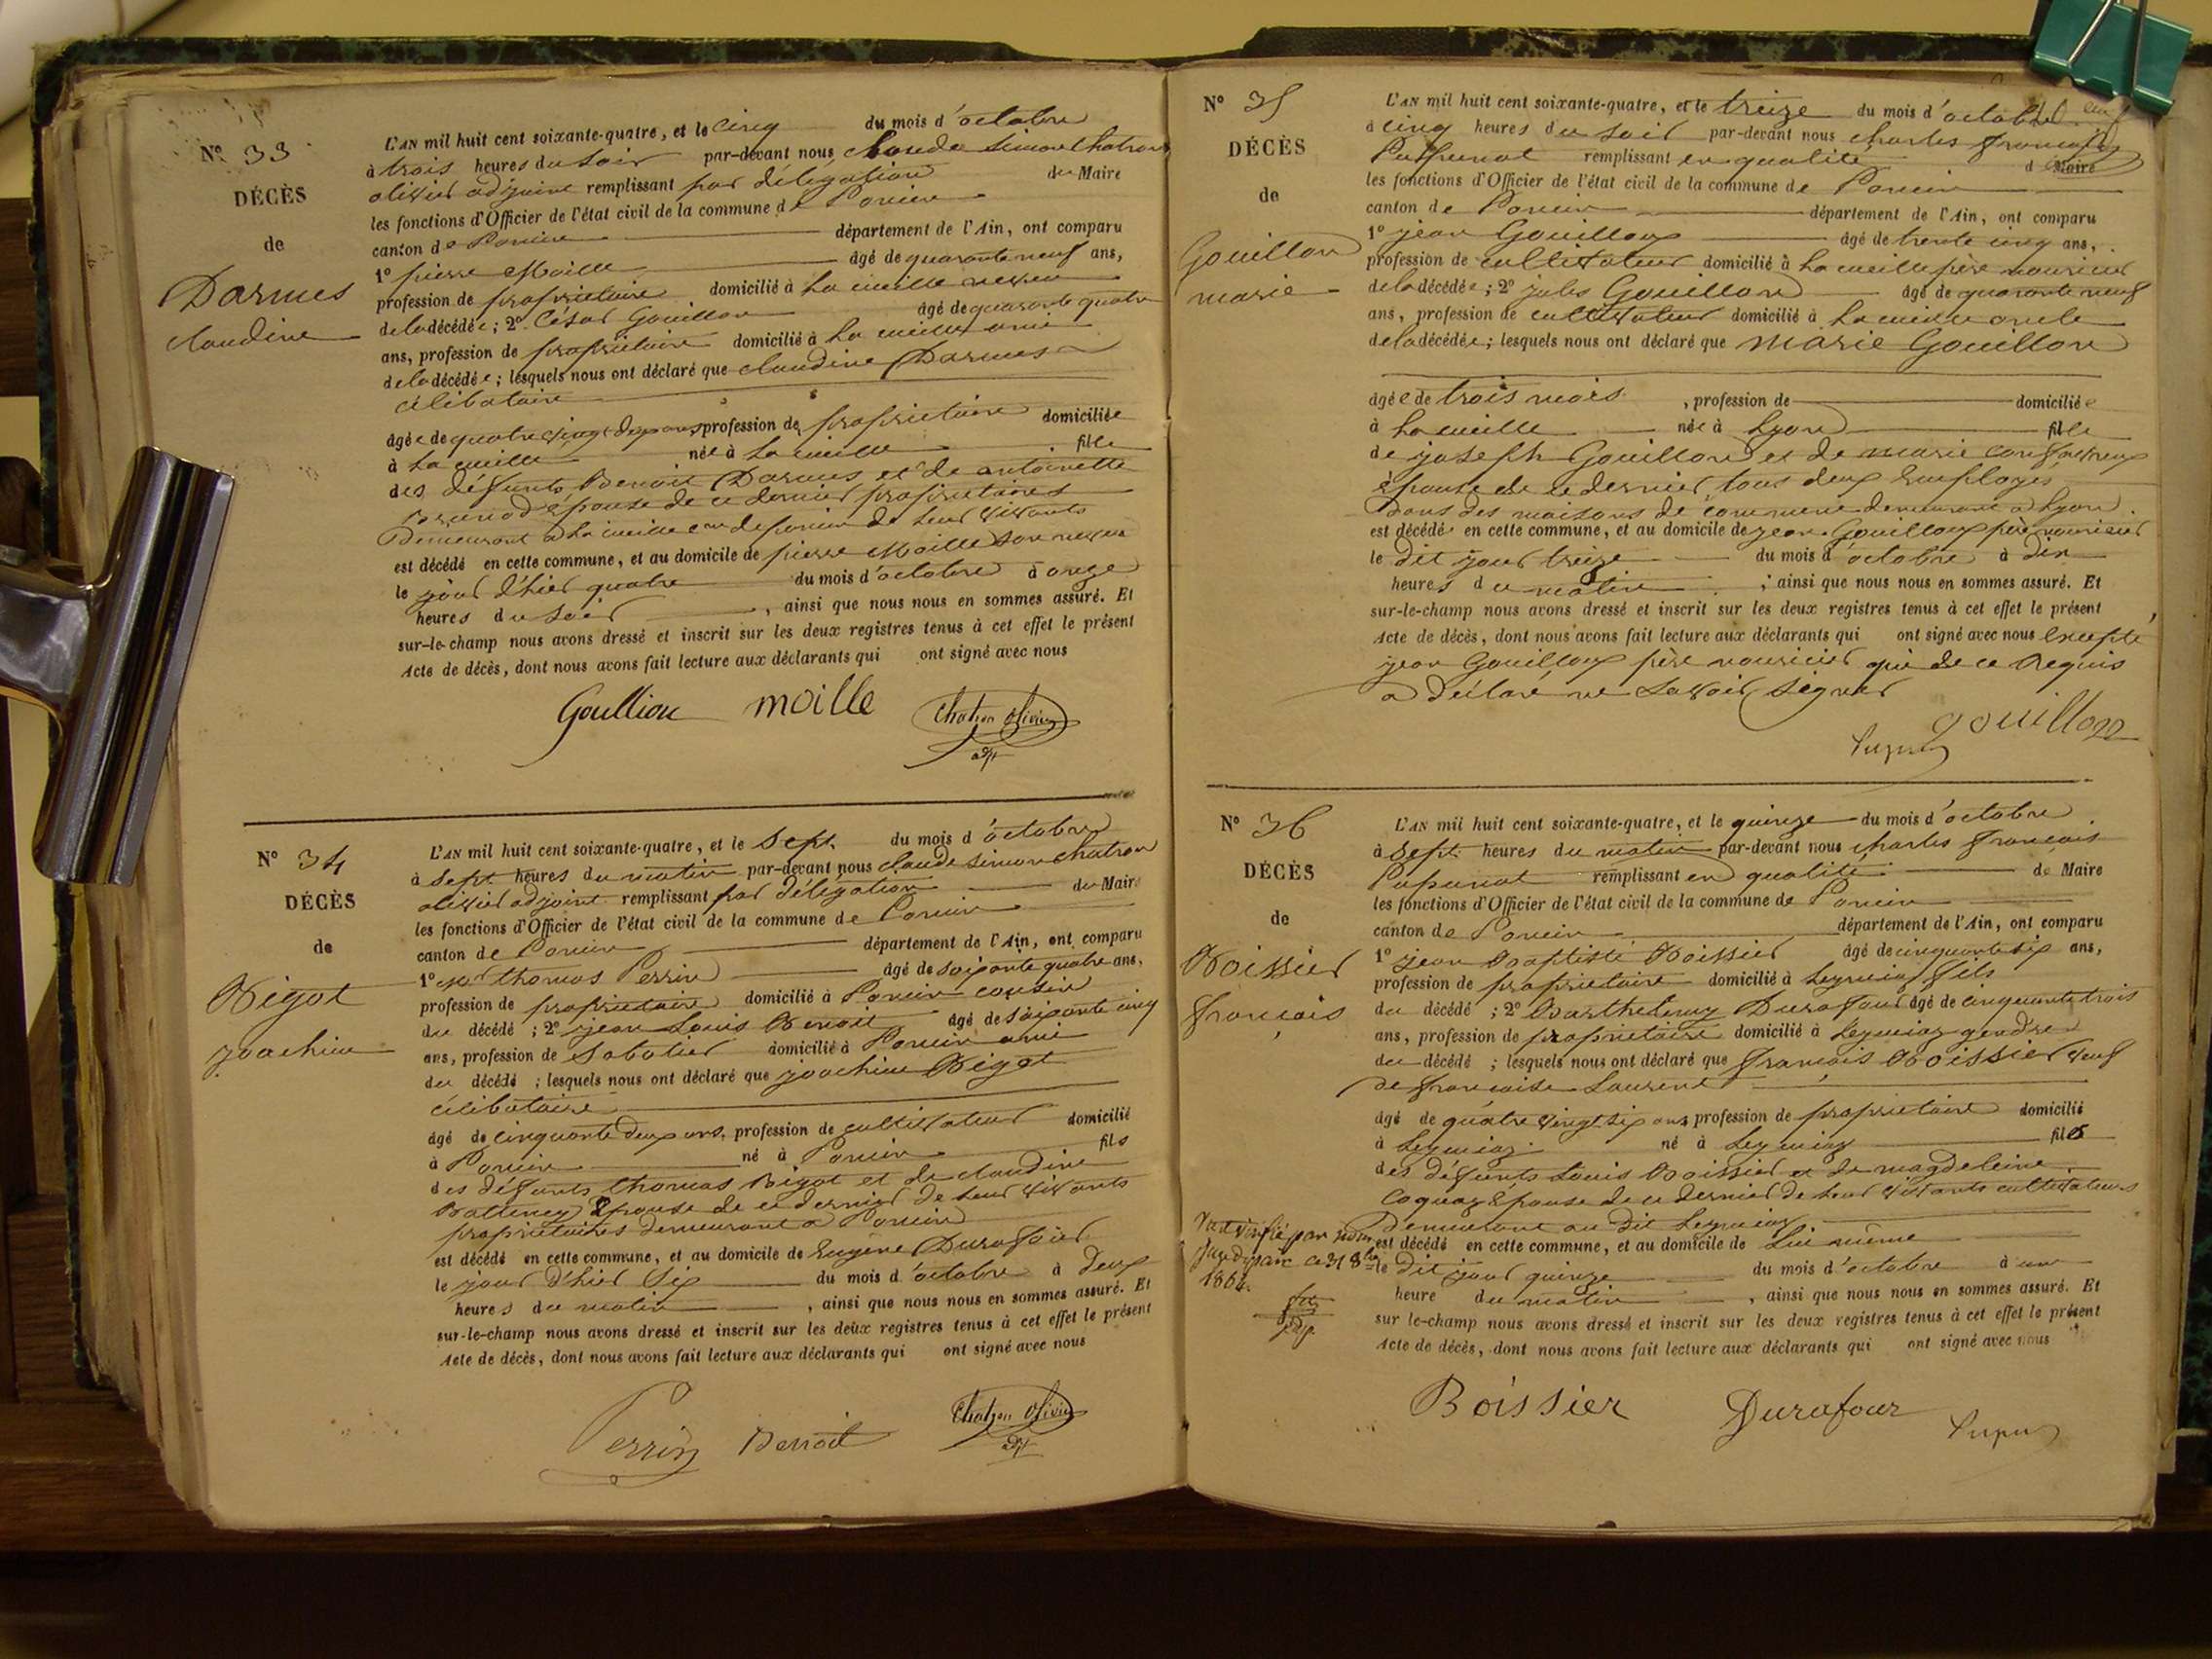 N° 33
DÉCÈS
de
Darmes
claudine
L'AN mil huit cent soixante-quatre, et le cinq du mois d'octobre
à trois heures du soir par-devant nous claude simon chatron
olivier adjoint remplissant par délégation du Maire
les fonctions d'Officier de l'état civil de la commune de Poncin
canton de Poncin département de l'Ain, ont comparu
1° pierre Moille âgé de quarante neuf ans,
profession de propriétaire domicilié à La cueille neveu
de la décédée; 2° César Gouillon âgé de quarante quatre
ans, profession de propriétaire domicilié à La cueille ami
de la décédée; lesquels nous ont déclaré que claudine Darmes
célibataire
âgée de quatre vingt deux ans profession de propriétaire domiciliée
à La cueille née à La cueille fille
des défunts Benoit Darmes et de antoinette
Brunod épouse de ce dernier propriétaires
Demeurant à La cueille cne de poncin de leur vivants
est décédé en cette commune, et au domicile de pierre Moille son neveu
le jour d'hier quatre du mois d'octobre à onze
heures du soir, ainsi que nous nous en sommes assuré. Et
sur-le-champ nous avons dressé et inscrit sur les deux registres tenus à cet effet le présent
Acte de décès, dont nous avons fait lecture aux déclarants qui ont signé avec nous
Goullion moille Chatron Olivier
adjt
N° 34
DÉCÈS
de
Bigot
joachim
L'AN mil huit cent soixante-quatre, et le Sept du mois d'octobre
à Sept heures du matin par-devant nous claude simon chatron
olivier adjoint remplissant par délégation du Maire
les fonctions d'Officier de l'état civil de la commune de Poncin
canton de Poncin département de l'Ain, ont comparu
1° thomas Perrin âgé de soixante quatre ans,
profession de propriétaire domicilié à Poncin cousin
du décédé; 2° jean Louis Benoit âgé de soixante cinq
ans, profession de Sabotier domicilié à Poncin ami
du décédé; lesquels nous ont déclaré que joachim Bigot
célibataire
âgé de cinquante deux ans, profession de cultivateur domicilié
à Poncin né à Poncin fils
des défunts thomas Bigot et de claudine
épouse de ce dernier de leur vivants
propriétaires demeurant à Poncin
est décédé en cette commune, et au domicile de Eugène Durafour
le jour d'hier Six du mois d'octobre à deux
heures du matin, ainsi que nous nous en sommes assuré. Et
sur-le-champ nous avons dressé et inscrit sur les deux registres tenus à cet effet le présent
Acte de décès, dont nous avons fait lecture aux déclarants qui ont signé avec nous
Perrin Benoit Chatron Olivier
adjt
N° 35
DÉCÈS
de
Gouillon
marie
L'AN mil huit cent soixante-quatre, et le treize du mois d'octobre
à cinq heures du soir par-devant nous charles françois
remplissant en qualité de Maire
les fonctions d'Officier de l'état civil de la commune de Poncin
canton de Poncin département de l'Ain, ont comparu
1° jean Gouilloux âgé de trente cinq ans,
profession de cultivateur domicilié à La cueille père nouricier
de la décédée; 2° jules Gouillon âgé de quarante neuf
ans, profession de cultivateur domicilié à La cueille oncle
de la décédée; lesquels nous ont déclaré que marie Gouillon
âgée de trois mois, profession de domiciliée
à La cueille née à Lyon fille
de joseph Gouillon et de marie
épouse de ce dernier, tous deux Employés
Dans des maisons de commerce demeurant à Lyon.
est décédé en cette commune, et au domicile de jean Gouilloux père nouricier
le dit jour treize du mois d'octobre à dix
heures du matin; ainsi que nous nous en sommes assuré. Et
sur-le-champ nous avons dressé et inscrit sur les deux registres tenus à cet effet le présent
Acte de décès, dont nous avons fait lecture aux déclarants qui ont signé avec nous Excepté
jean Gouilloux père nouricier qui de ce Requis
a déclaré ne Savoir Signer
gouillon
N° 36
DÉCÈS
de
Boissier
françois
L'AN mil huit cent soixante-quatre, et le quinze du mois d'octobre
à Sept heures du matin par-devant nous charles françois
remplissant en qualité de Maire
les fonctions d'Officier de l'état civil de la commune de Poncin
canton de Poncin département de l'Ain, ont comparu
1° jean Baptiste Boissier âgé de cinquante six ans,
profession de propriétaire domicilié à Leymiaz fils
du décédé; 2° Barthelemy Durafour âgé de cinquante trois
ans, profession de propriétaire domicilié à Leymiaz gendre
du décédé; lesquels nous ont déclaré que françois Boissier veuf
de françoise Laurent
âgé de quatre vingt six ans profession de propriétaire domicilié
à Leymiaz né à Leymiaz fils
des défunts Louis Boissier et de magdeleine
Coquaz Epouse de ce dernier de leur vivants cultivateurs
Demeurant au dit Leymiaz
est décédé en cette commune, et au domicile de Lui même
le Dit jour quinze du mois d'octobre à une
heure du matin, ainsi que nous nous en sommes assuré. Et
sur le-champ nous avons dressé et inscrit sur les deux registres tenus à cet effet le présent
Acte de décès, dont nous avons fait lecture aux déclarants qui ont signé avec nous
Vu et vérifié par nous
juge de paix ce 31 8bre
1864.
Boissier Durafour